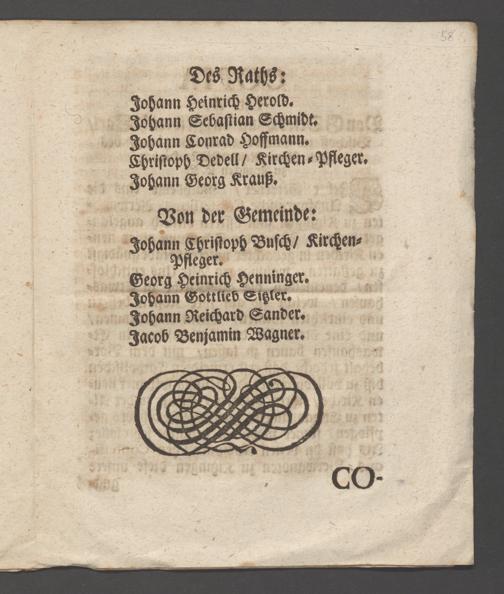 58
Des Raths:
Johann Heinrich Herold.
Johann Sebastian Schmidt.
Johann Conrad Hoffmann.
Christoph Dedell/ Kirchen-Pfleger.
Johann Georg Krauß.
Von der Gemeinde:
Johann Christoph Busch/ Kirchen-
Pfleger.
Georg Heinrich Henninger.
Johann Gottlieb Sitzler.
Johann Reichard Sander.
Jacob Benjamin Wagner.
CO-